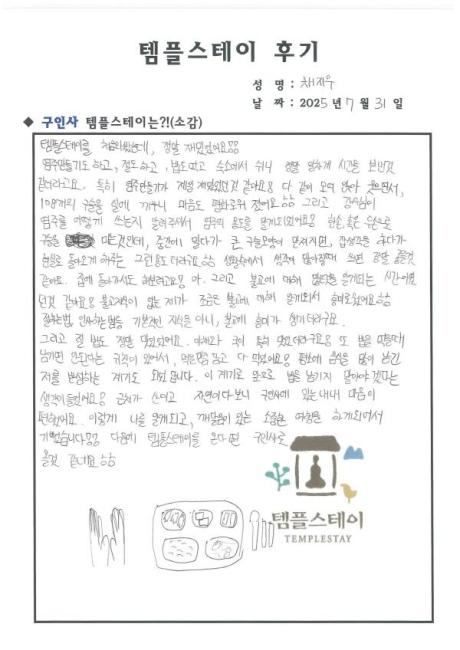 템플스테이 후기
성 명 : 채지우
날 짜 : 2025년 7월 31일
◆ 구인사 템플스테이는?!(소감)
템플스테이를 해봤는데, 정말 재밌었어요
염주만들기도 하고, 절도하고, 밥도먹고 숙소에서 쉬니 정말 알차게 시간을 보낸것
같더라고요. 특히 염주만들기가 제일 재밌었던것 같아요 다 같이 모여 앉아
108개의 구슬을 실에 끼우니 마음도 평화로워 졌어요 그리고 강사님이
염주를 어떻게 쓰는지 알려주셔서 염주의 용도를 알게되었어요
구슬 중간에 있다가 큰 구슬모양이 만져지면, 잡생각을 하다가
현실로 돌아오게 해주는 그런용도더라구요 생활속에서 생각이 많아질때 쓰면 정말 좋을것
같아요. 집에 돌아가서도 해보려고요 아, 그리고 불교에 대해 알게되는 시간이었
던것 같아요 불교지식이 없는 제가 조금은 불교에 대해 알게되서 흥미로웠어요
절하는법, 인사하는법등 기본적인 지식을 아니, 불교에 흥미가 생기더라구요.
그리고 절 밥도 정말 맛있었어요. 야채와 국이 특히 맛있더라구요 또 밥을 먹을때
남기면 안된다는 규칙이 있어서, 먹을만큼 담고 다 먹었어요 평소에 음식을 많이 남긴
저를 반성하는 계기도 되었습니다. 이 계기로 앞으로 밥을 남기지 말아야 겠다는
생각이들었어요 근처가 산이고 자연이다보니 구인사에 있는내내 마음이
편했어요. 이렇게 나를 알게되고, 깨달음이 있는 소중한 여행을 하게되어서
기뻤습니다 다음에 템플스테이를 온다면 구인사로
올것 같네요
템플스테이
TEMPLESTAY